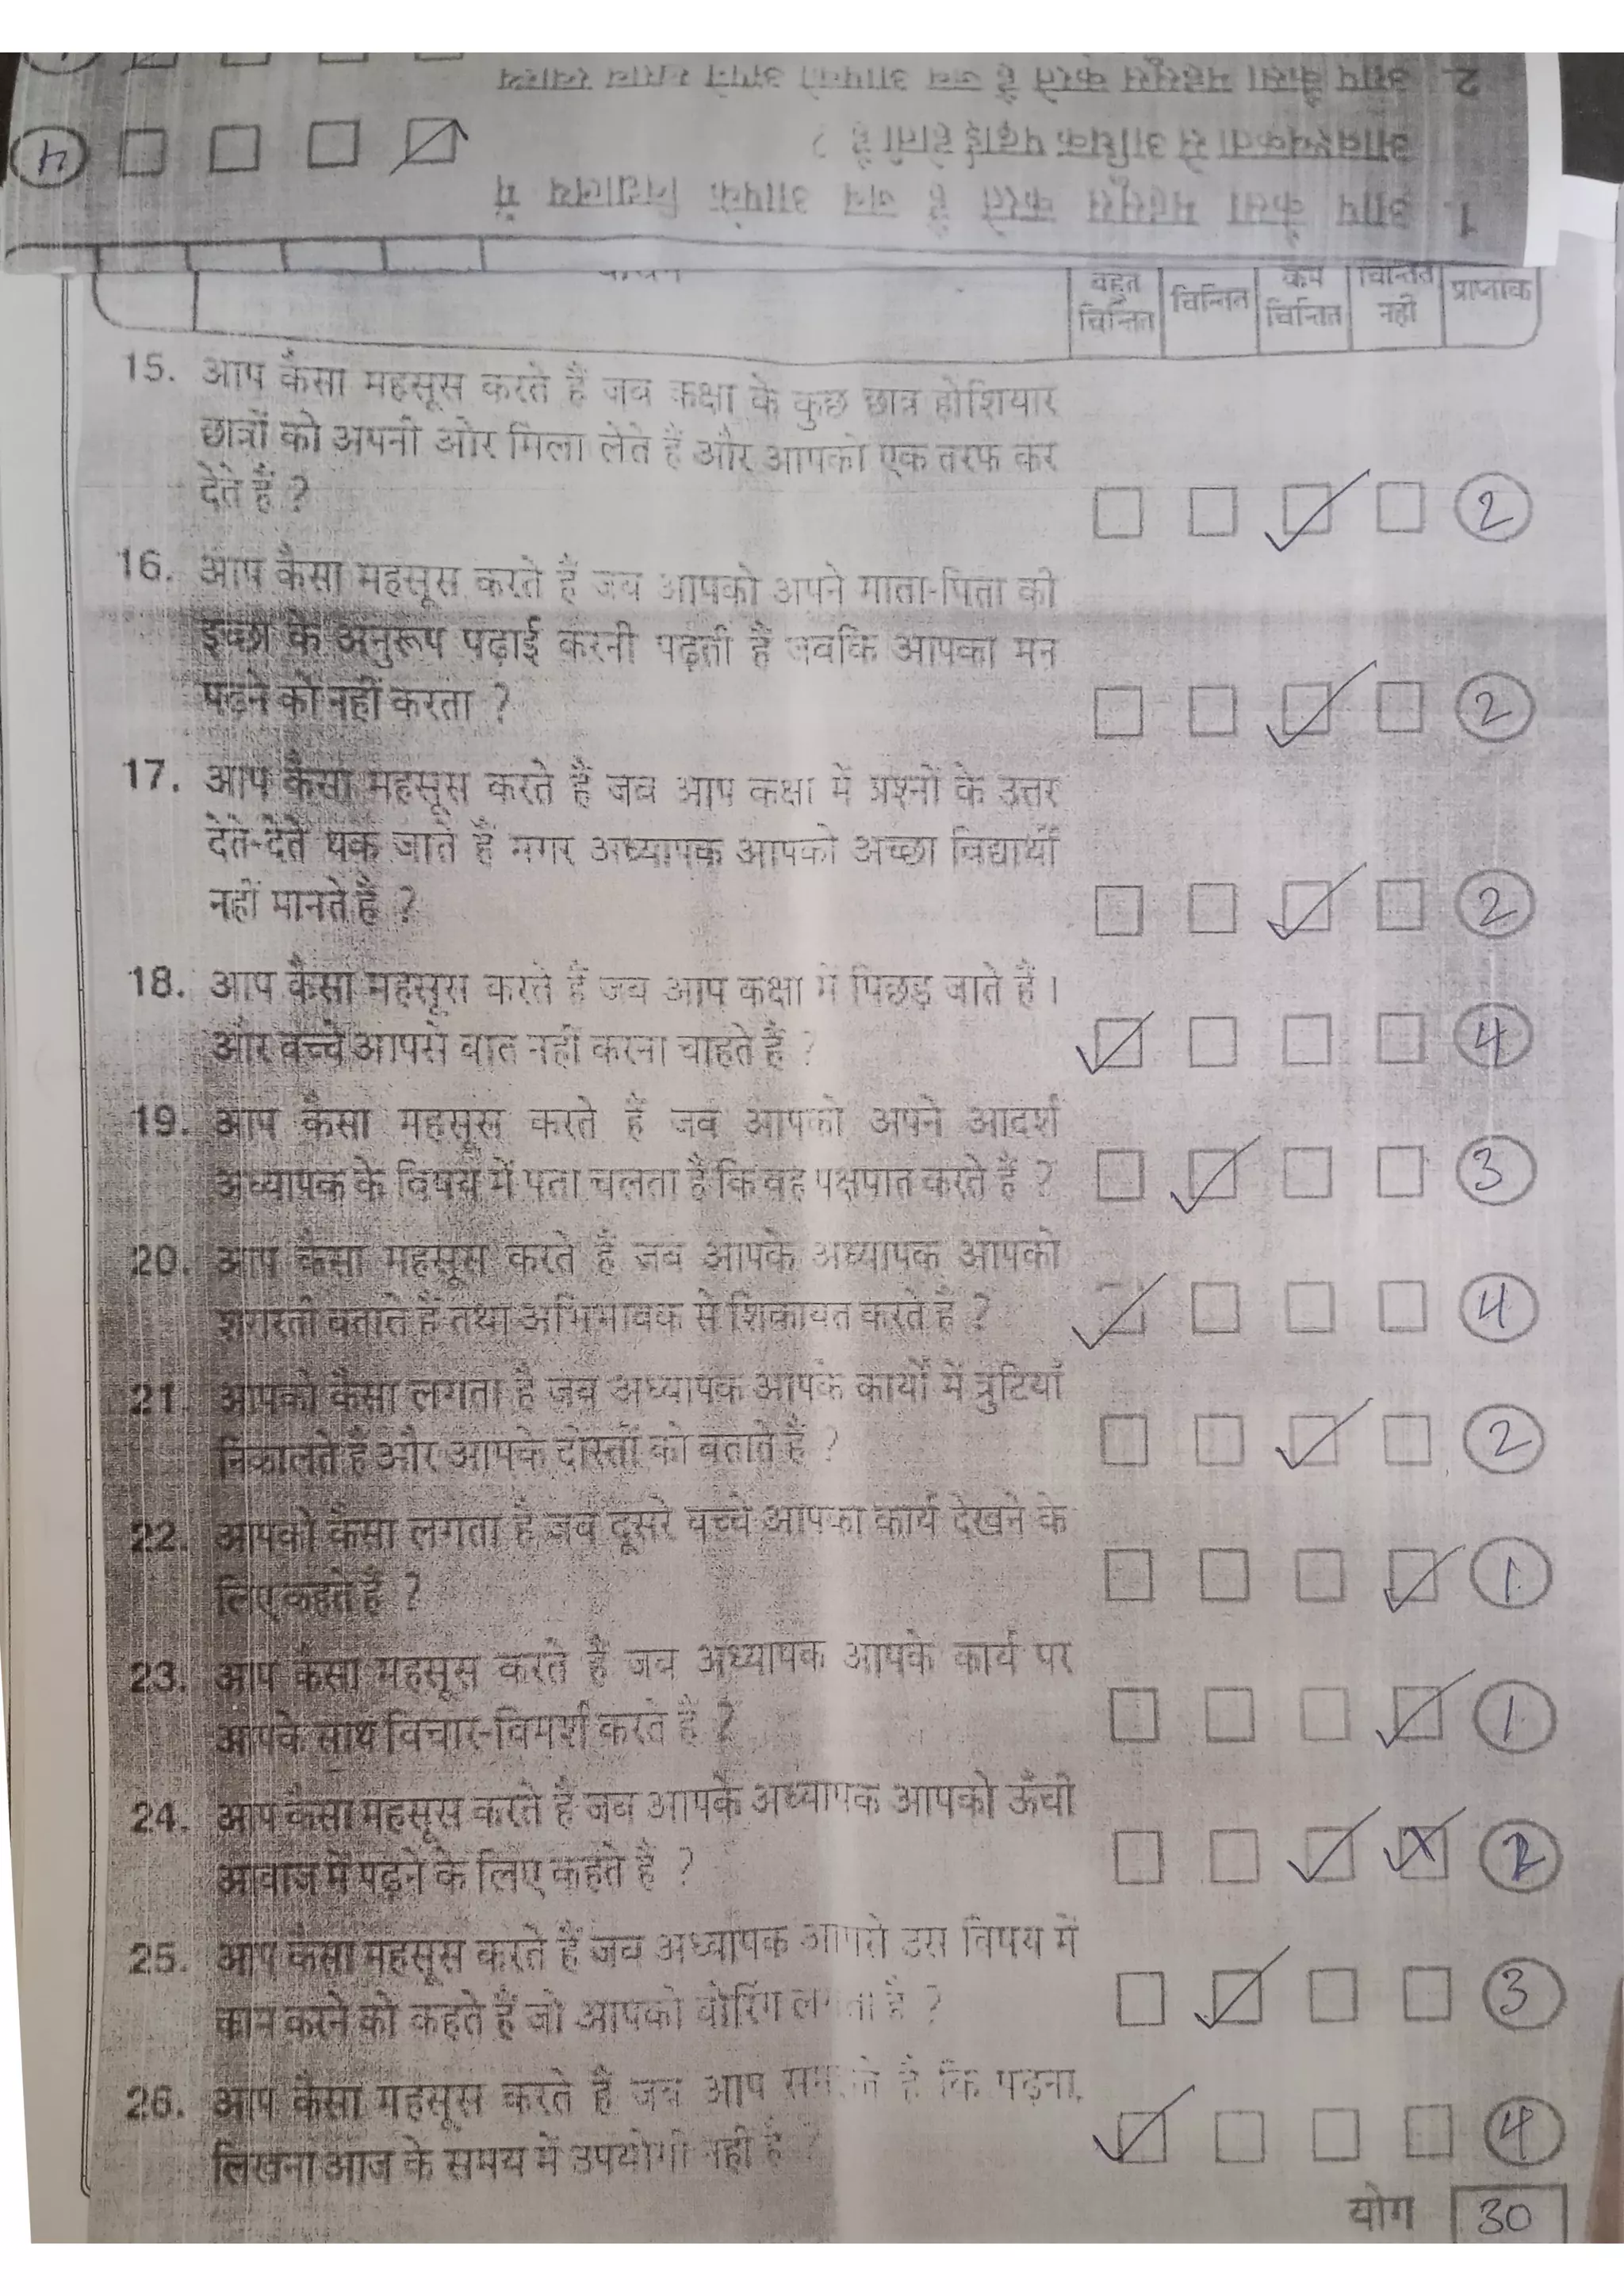 2. आप कैसा महसूस करते हैं जब आपको अपने खराब स्वास्थ्य
आवश्यकता से अधिक पढ़ाई होती है ?
4
1. आप कैसा महसूस करते हैं जब आपके विद्यालय में
बहुत चिन्तित
चिन्तित
कम चिन्तित
चिन्तित नहीं
प्राप्तांक
15. आप कैसा महसूस करते हैं जब कक्षा के कुछ छात्र होशियार
छात्रों को अपनी ओर मिला लेते हैं और आपको एक तरफ कर
देते हैं ?
2
16. आप कैसा महसूस करते हैं जब आपको अपने माता-पिता की
इच्छा के अनुरूप पढ़ाई करनी पढ़ती हैं जबकि आपका मन
पढ़ने को नहीं करता ?
2
17. आप कैसा महसूस करते हैं जब आप कक्षा में प्रश्नों के उत्तर
देते-देते थक जाते हैं मगर अध्यापक आपको अच्छा विद्यार्थी
नहीं मानते है ?
2
18. आप कैसा महसूस करते हैं जब आप कक्षा में पिछड़ जाते हैं ।
और बच्चे आपसे बात नहीं करना चाहते हैं ?
4
19. आप कैसा महसूस करते हैं जब आपको अपने आदर्श
अध्यापक के विषय में पता चलता है कि वह पक्षपात करते हैं ?
3
20. आप कैसा महसूस करते हैं जब आपके अध्यापक आपको
शरारती बताते हैं तथा अभिभावक से शिकायत करते है ?
4
21. आपको कैसा लगता है जब अध्यापक आपके कार्यों में त्रुटियाँ
निकालते हैं और आपके दोस्तों को बताते हैं ?
2
22. आपको कैसा लगता है जब दूसरे बच्चे आपका कार्य देखने के
लिए कहते हैं ?
1
23. आप कैसा महसूस करते हैं जब अध्यापक आपके कार्य पर
आपके साथ विचार-विमर्श करते हैं ?
1
24. आप कैसा महसूस करते हैं जब आपके अध्यापक आपको ऊँची
आवाज में पढ़ने के लिए कहते हैं ?
2
25. आप कैसा महसूस करते हैं जब अध्यापक आपसे उस विषय में
काम करने को कहते हैं जो आपको बोरिंग लगता है ?
3
26. आप कैसा महसूस करते हैं जब आप समझते है कि पढ़ना,
लिखना आज के समय में उपयोगी नहीं है ?
4
योग 30